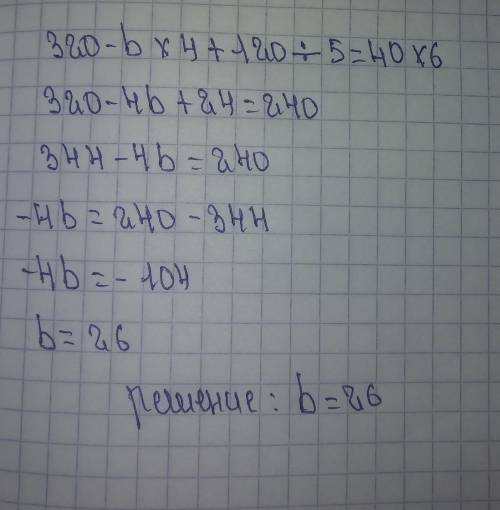 320-b×4+120÷5=40×6
320-4b+24=240
344-4b=240
-4b=240-344
-4b=-104
b=26
решение: b=26